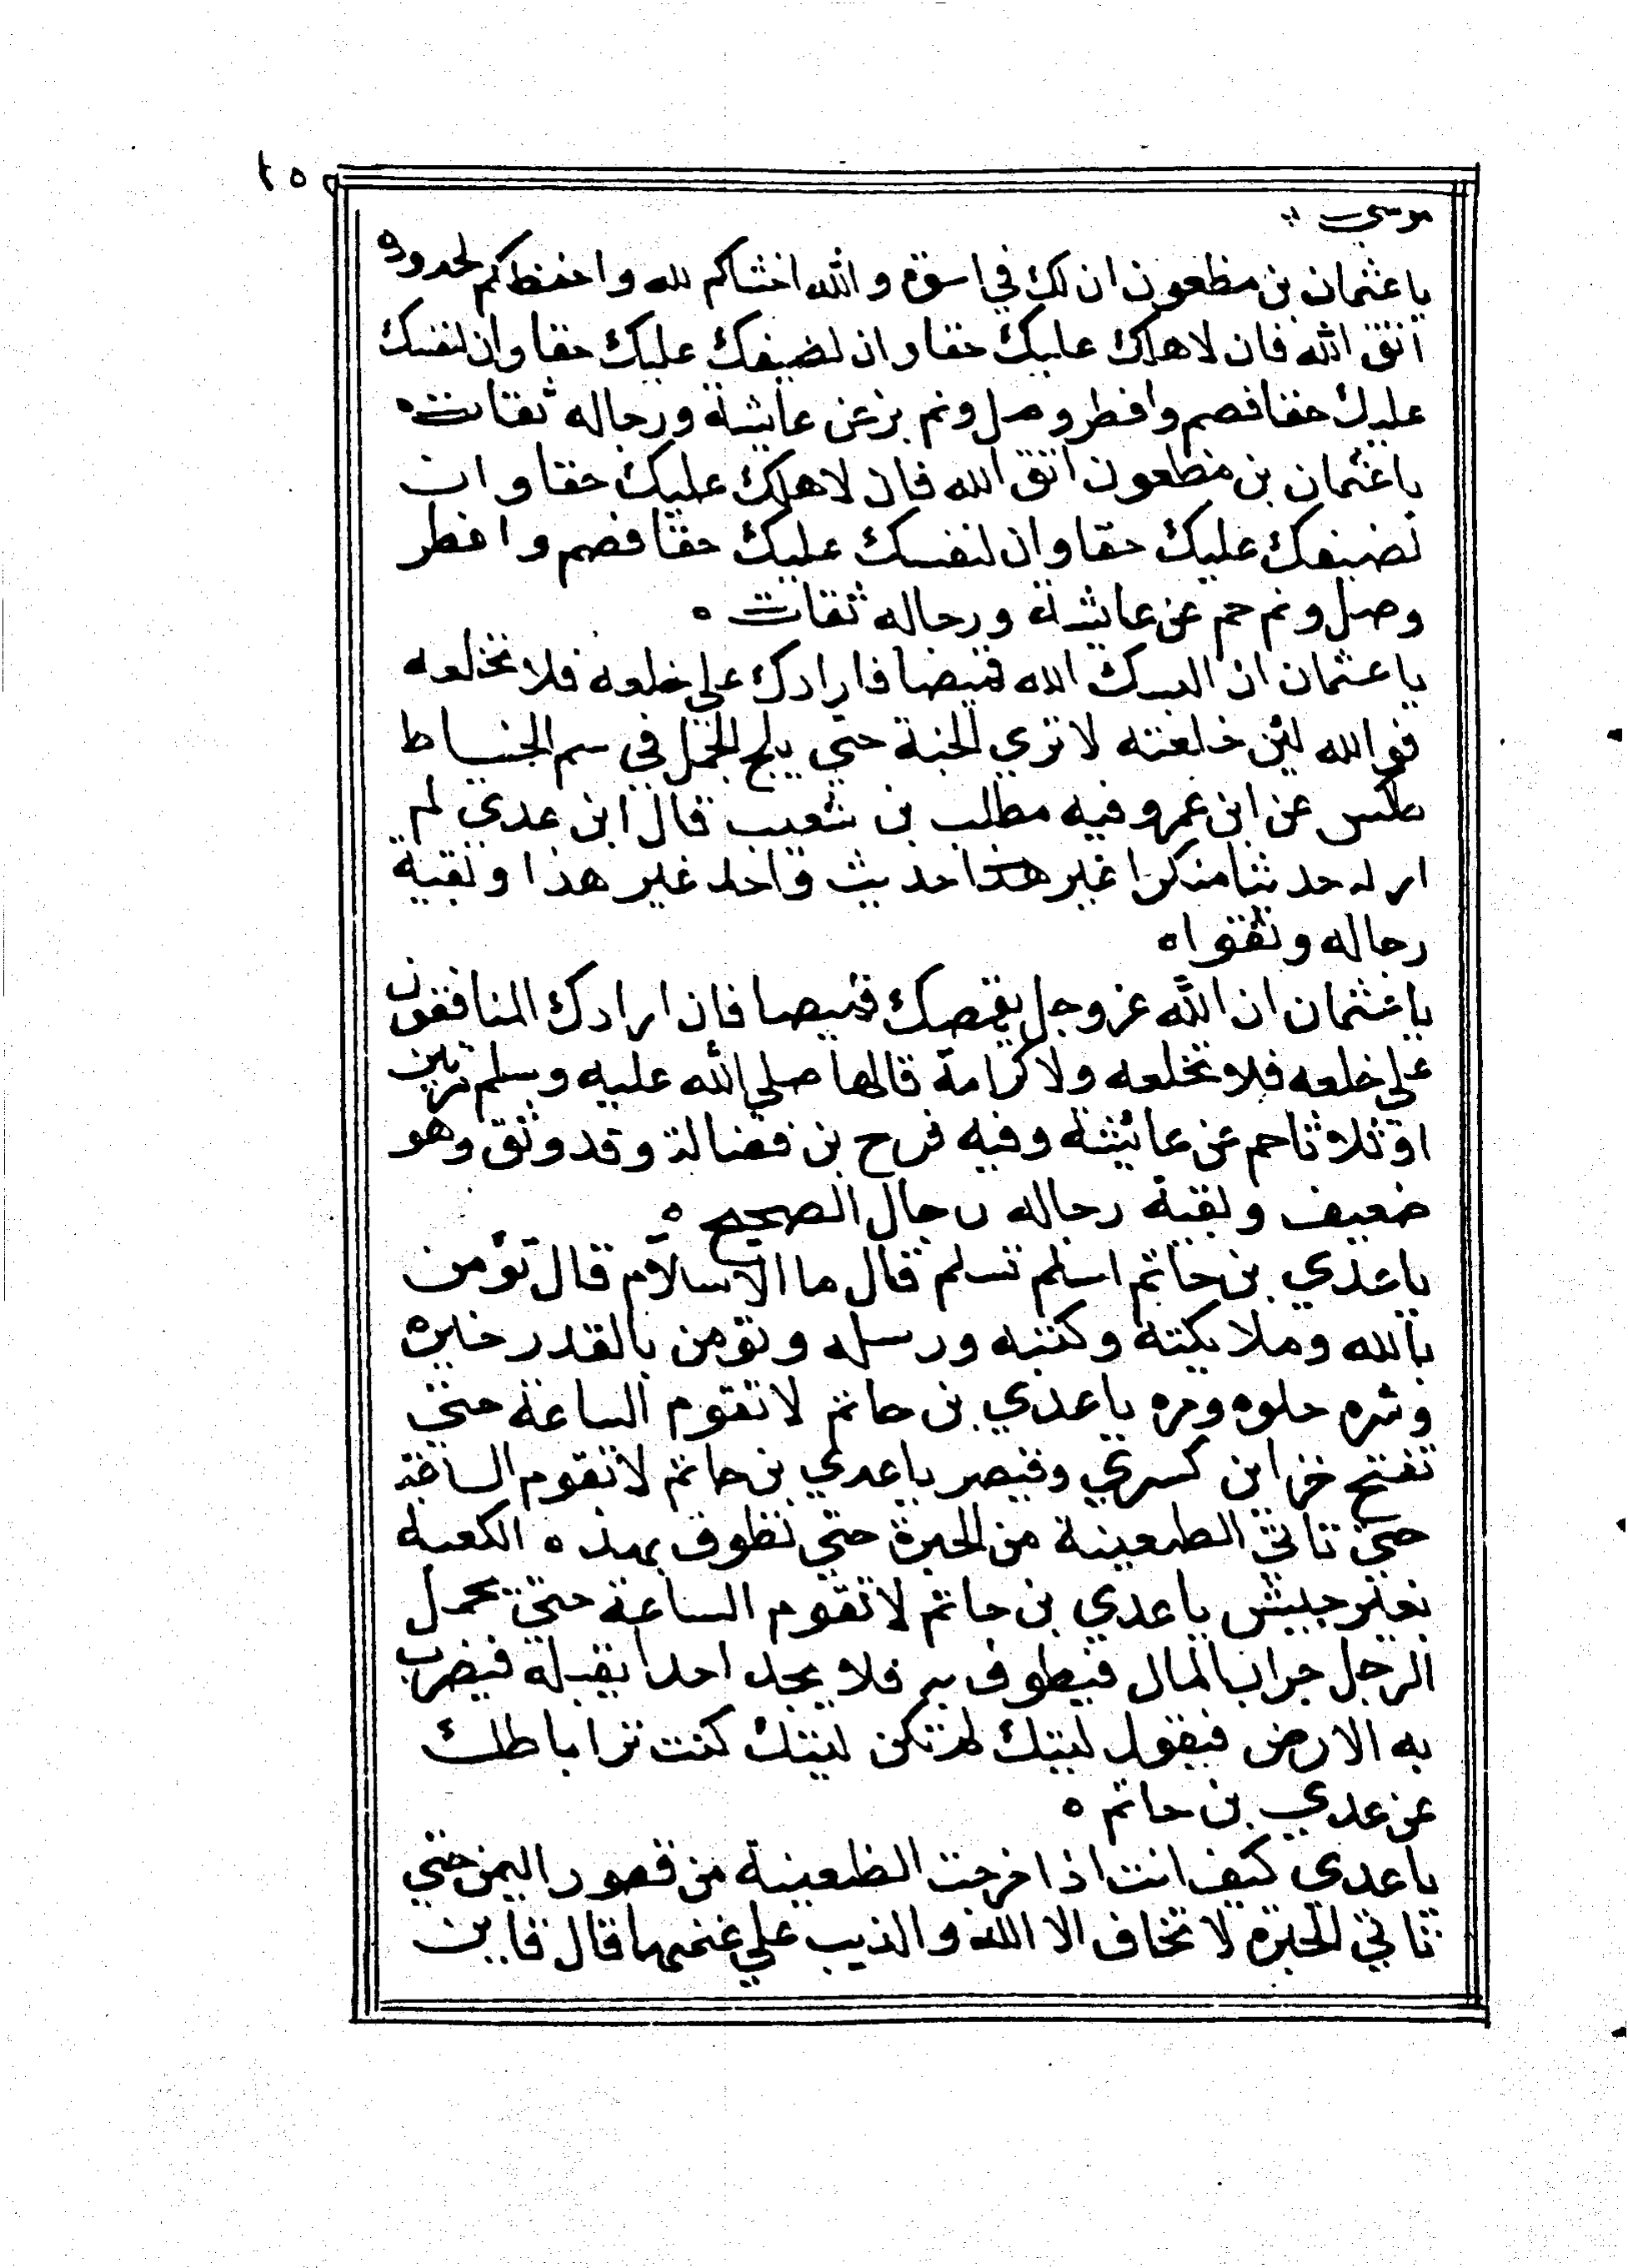 ٢٥٩
موسى
ياعثمان بن مظعون ان لك في اسوة والله اخشاكم لله واحفظكم لحدوده
اتق الله فان لاهلك عليك حقا وان لضيفك عليك حقا وان لنفسك
عليك حقا فصم وافطر وصل ونم بز عن عايشة ورجاله ثقات ه
ياعثمان بن مظعون اتق الله فان لاهلك عليك حقا وان
لضيفك عليك حقا وان لنفسك عليك حقا فصم وافطر
وصل ونم حم عن عايشة ورجاله ثقات ه
ياعثمان ان البسك الله قميصا فارادك علي خلعه فلا تخلعه
فوالله لئن خلعته لا تري الجنة حتي يلج الجمل في سم الخياط
طكس عن ابن عمرو فيه مطلب بن شعيب قال ابن عدي لم
ار له حديثا منكرا غير هذا حديث واحد غير هذا وبقية
رجاله وثقوا ه
ياعثمان ان الله عز وجل يقمصك قميصا فان ارادك المنافقون
علي خلعه فلا تخلعه ولا كرامة قالها صلي الله عليه وسلم مرتين
او ثلاثا حم عن عائشة وفيه فرح بن فضالة وقد وثق وهو
ضعيف وبقية رجاله رجال الصحيح ه
ياعدي بن حاتم اسلم تسلم قال ما الاسلام قال تؤمن
بالله وملايكته وكتبه ورسله وتؤمن بالقدر خيره
وشره حلوه ومره ياعدي بن حاتم لا تقوم الساعة حتي
تفتح خزاين كسري وقيصر ياعدي بن حاتم لا تقوم الساعة
حتي تاتي الظعينة من الحيرة حتي تطوف بهذه الكعبة
بغير جيش ياعدي بن حاتم لا تقوم الساعة حتي يحمل
الرجل جراب المال فيطوف به فلا يجد احدا يقبله فيضرب
به الارض فيقول ليتك لم تكن ليتك كنت ترابا طك
عن عدي بن حاتم ه
ياعدي كيف انت اذا خرجت الظعينة من قصور اليمن حتي
تاتي الحيره لا تخاف الا الله والذيب علي غنمها قال فاين